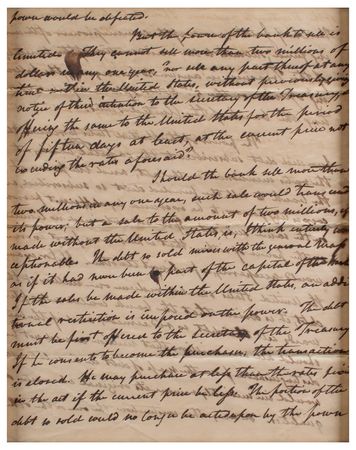 power would be defeated.
But the power of the bank to sell is
limited. They cannot sell more than two millions of
dollars in any one year, "nor sell any part thereof at any
time within the United States, without previously giving
notice of their intention to the secretary of the Treasury &
offering the same to the United States for the period
of fifteen days at least, at the current price not
exceeding the rates aforesaid."
Should the bank sell more than
two millions in any one year, such sale would transcend
its power; but a sale to the amount of two millions, if
made without the United States, is, I think entirely
. The debt so sold mixes with the general mass
as if it had never been a part of the capital of the bank
If the sales be made within the United States, an addi
tional restriction is imposed on the power. The debt
must be first offered to the secretary of the Treasury
If he consents to become the purchaser, the transaction
is closed. He may purchase at less than the rates
in the act if the current price be less. The portion of the
debt so sold could no longer be acted upon by the power